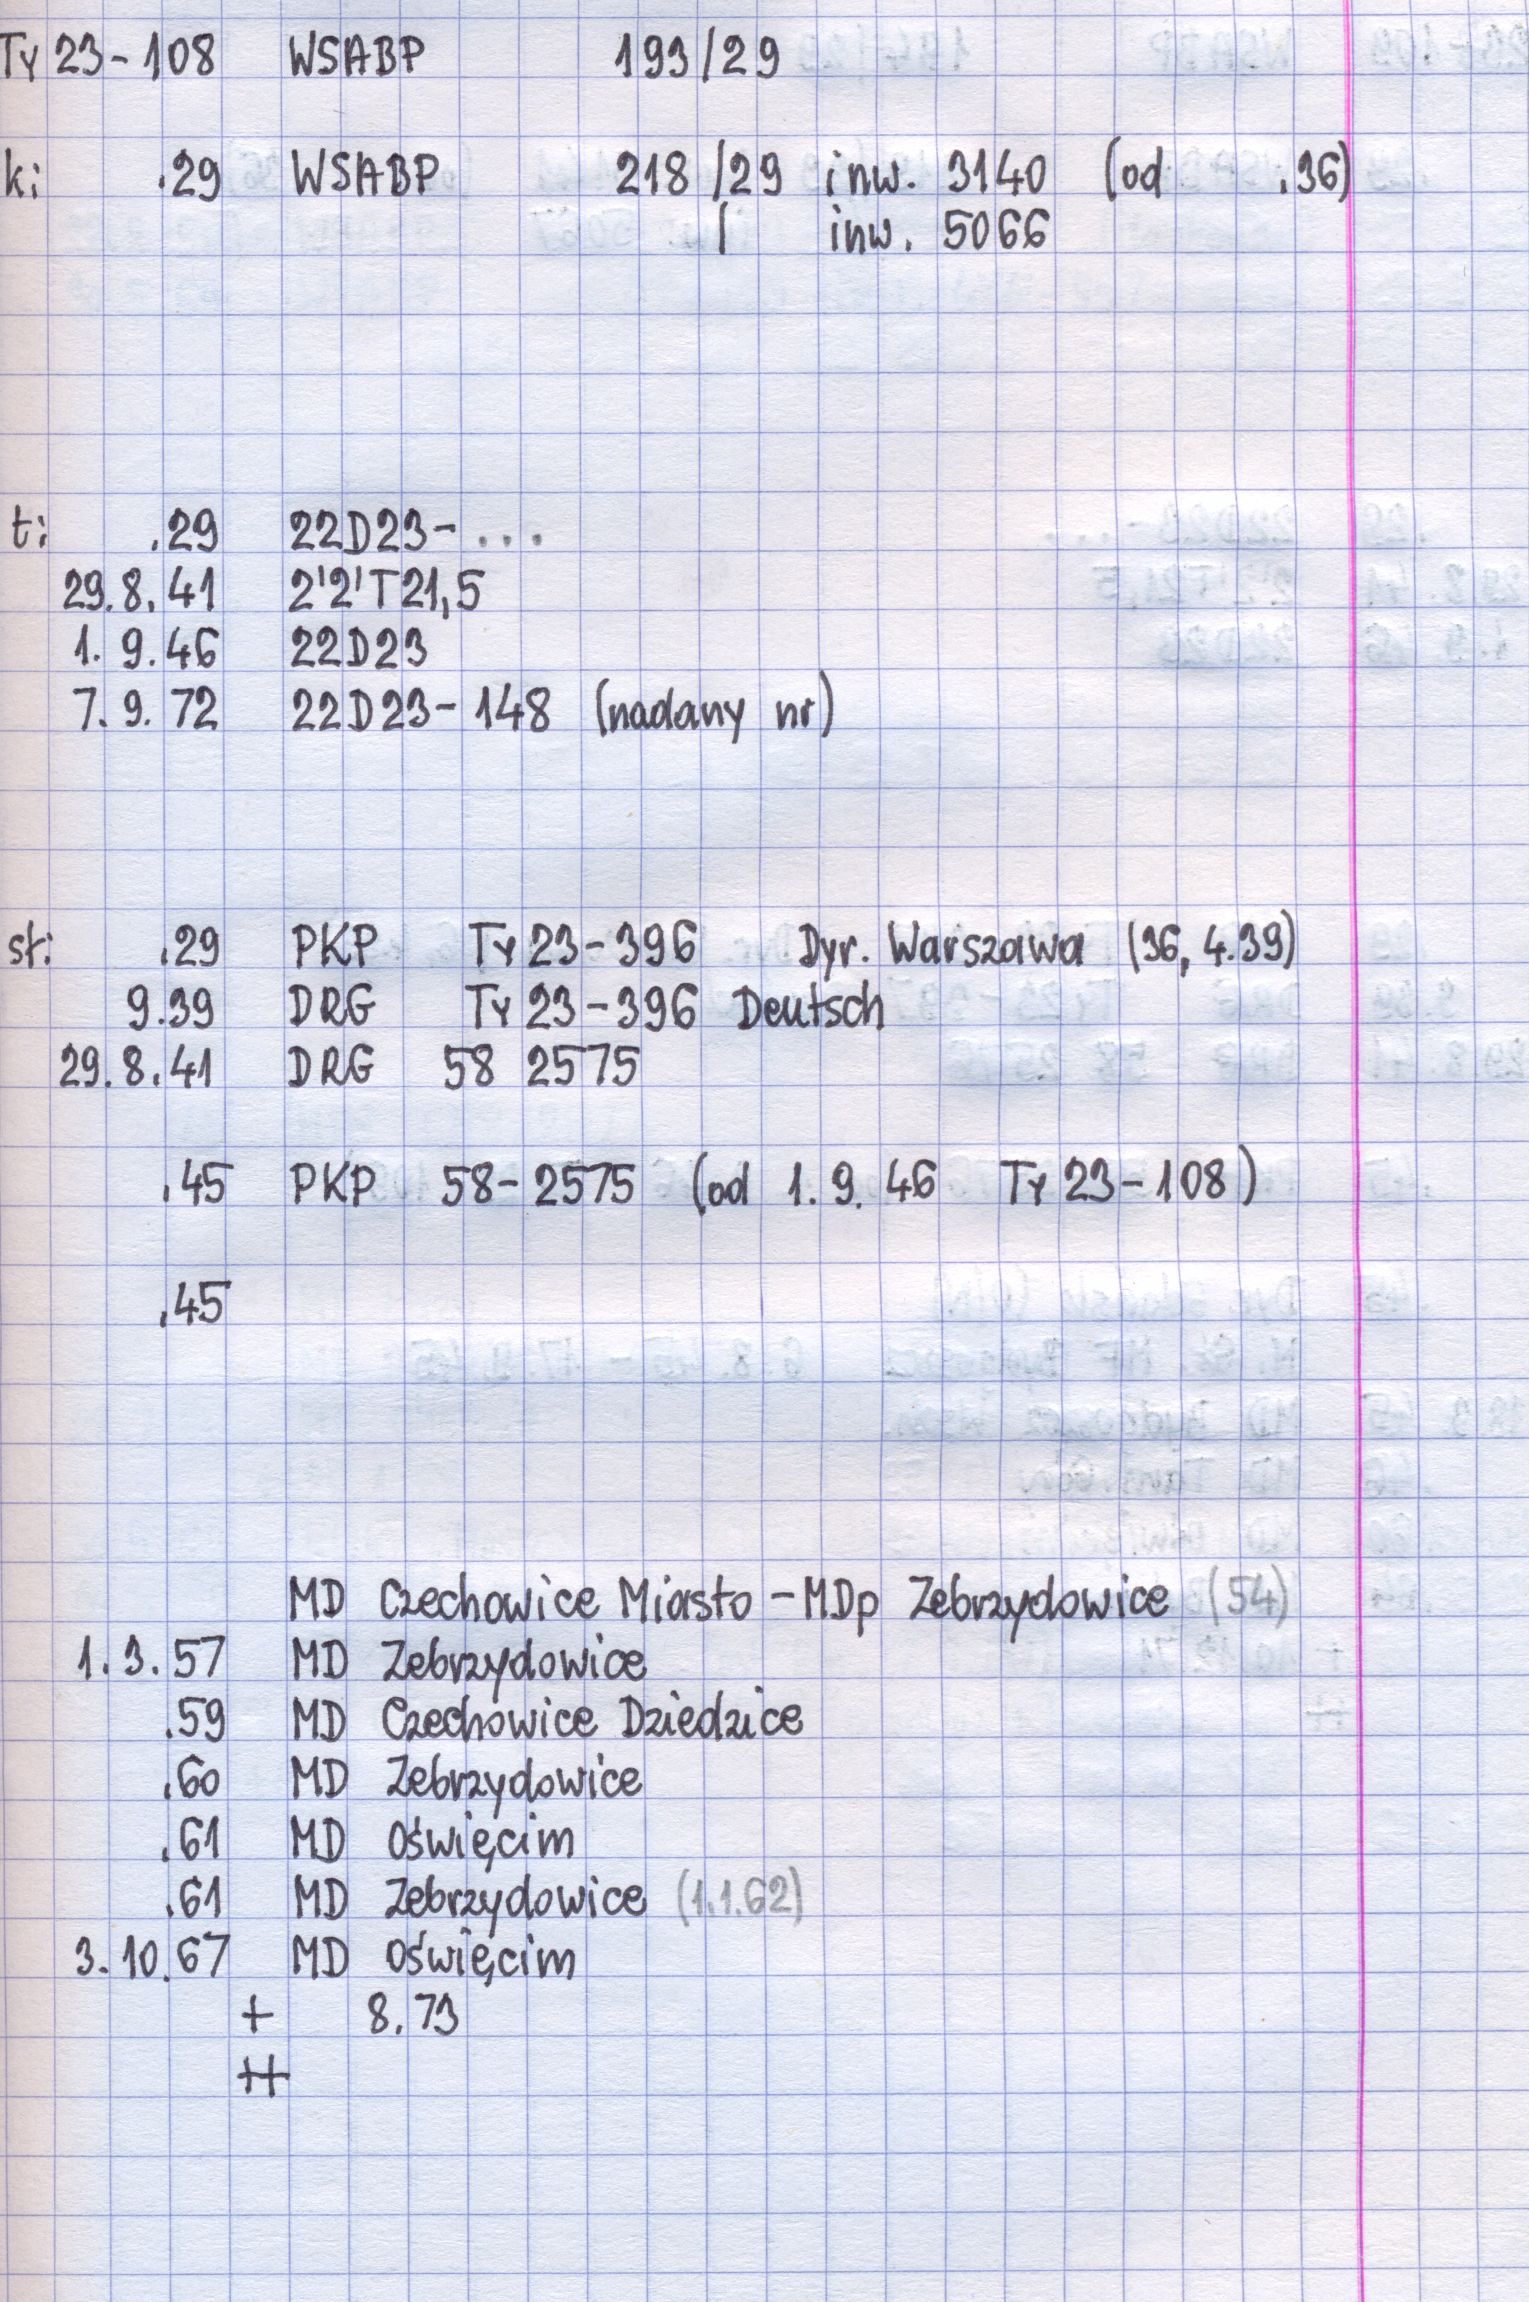 Ty 23-108 WSABP 193/29
k: .29 WSABP 218/29 inw. 3140 (od .36)
/ inw. 5066
t: .29 22D23-...
29.8.41 2'2'T21,5
1.9.46 22D23
7.9.72 22D23-148 (nadany nr)
sł: .29 PKP Ty 23-396 Dyr. Warszawa (36, 4.39)
9.39 DRG Ty 23-396 Deutsch
29.8.41 DRG 58 2575
.45 PKP 58-2575 (od 1.9.46 Ty 23-108)
.45
MD Czechowice Miasto - MDp Zebrzydowice (54)
1.3.57 MD Zebrzydowice
.59 MD Czechowice Dziedzice
.60 MD Zebrzydowice
.61 MD Oświęcim
.61 MD Zebrzydowice (1.1.62)
3.10.67 MD Oświęcim
+ 8.73
++